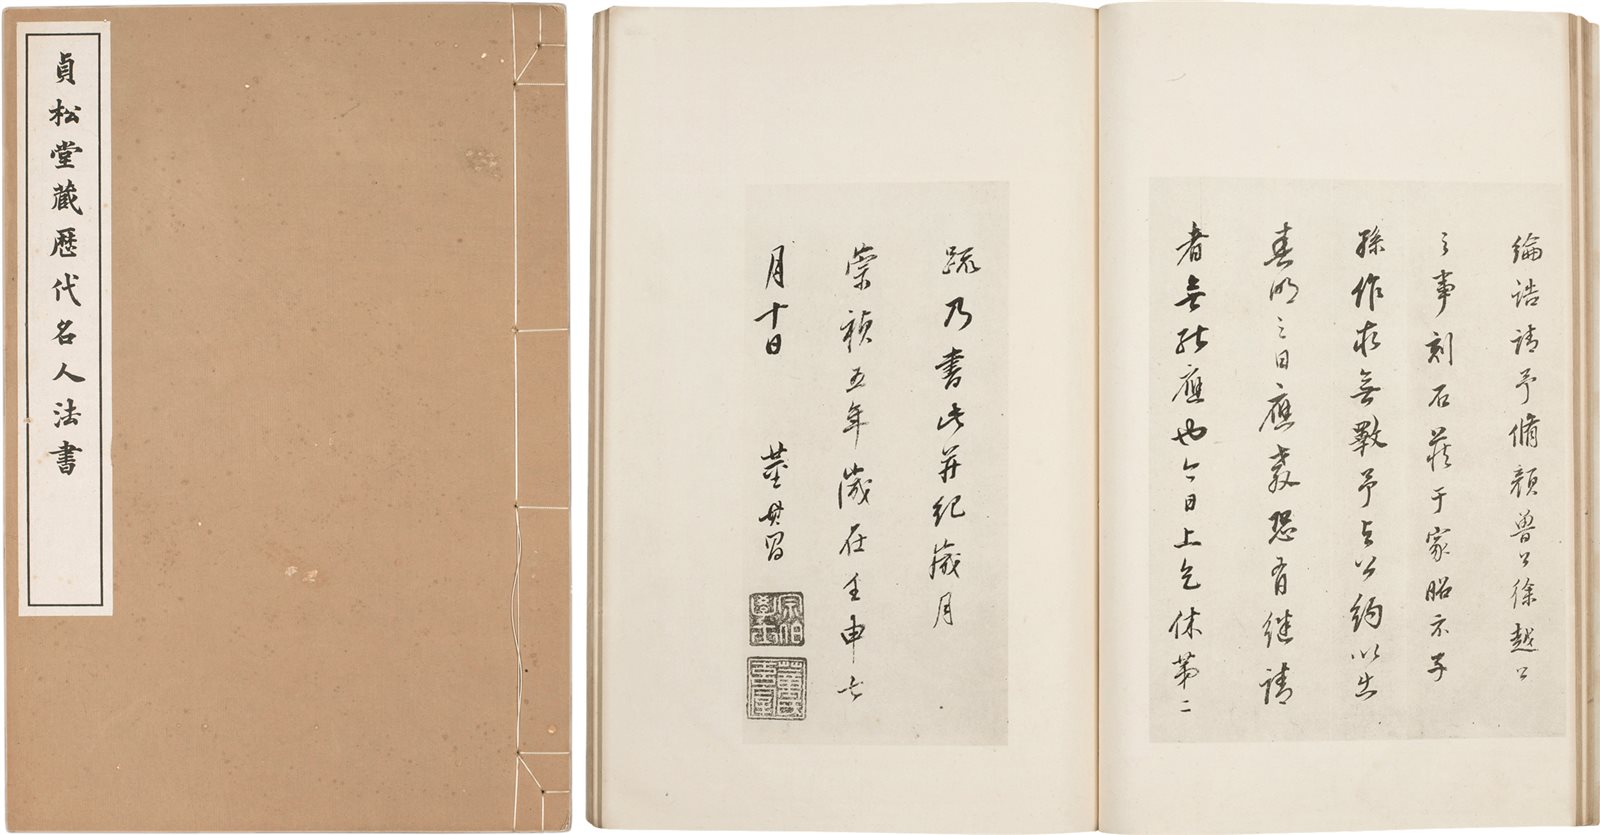 貞松堂藏歷代名人法書
綸誥請予脩顏魯公徐越公
之事刻石藏于家昭示子
孫作求無斁予之公約以出
春明之日應教恐有継請
者無以應也今日上乞休第二
疏乃書此并紀歲月
崇禎五年歲在壬申七
月十日 董其昌
宗伯學士
董其昌印